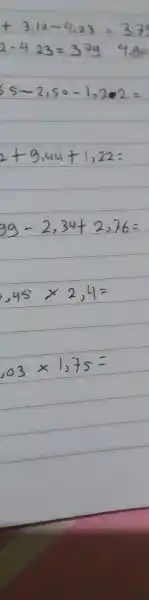 + 3,12 - 4,23 = 3,79
2 - 4 23 = 3 79
65 - 2,50 - 1,202 =
2 + 9,44 + 1,22 =
99 - 2,34 + 2,76 =
,45 × 2,4 =
,03 × 1,75 =